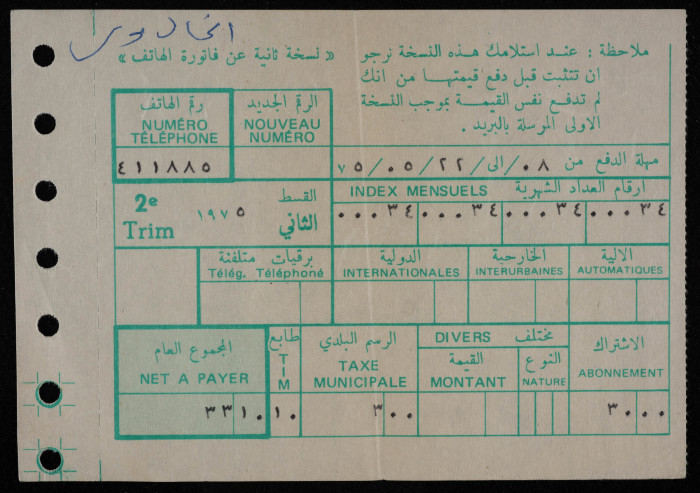 « نسخة ثانية عن فاتورة الهاتف »
ملاحظة : عند استلامك هذه النسخة نرجو
ان تتثبت قبل دفع قيمتها من انك
لم تدفع نفس القيمة بموجب النسخة
الاولى المرسلة بالبريد .
رقم الهاتف
NUMÉRO
TÉLÉPHONE
٤١١٨٨٥
الرقم الجديد
NOUVEAU
NUMÉRO
مهلة الدفع من ٠٨/الى/٢٢/٠٥/٧٥
2e
Trim
١٩٧٥
القسط
الثاني
INDEX MENSUELS ارقام العداد الشهرية
٠٠٠٣٤ ٠٠٠٣٤ ٠٠٠٣٤ ٠٠٠٣٤
برقيات متلفنة
Télég. Téléphoné
الدولية
INTERNATIONALES
الخارجية
INTERURBAINES
الالية
AUTOMATIQUES
المجموع العام
NET A PAYER
٣٣١٠
طابع
TIM
١٠
الرسم البلدي
TAXE
MUNICIPALE
٣٠٠
DIVERS مختلف
القيمة
MONTANT
النوع
NATURE
الاشتراك
ABONNEMENT
٣٠٠٠